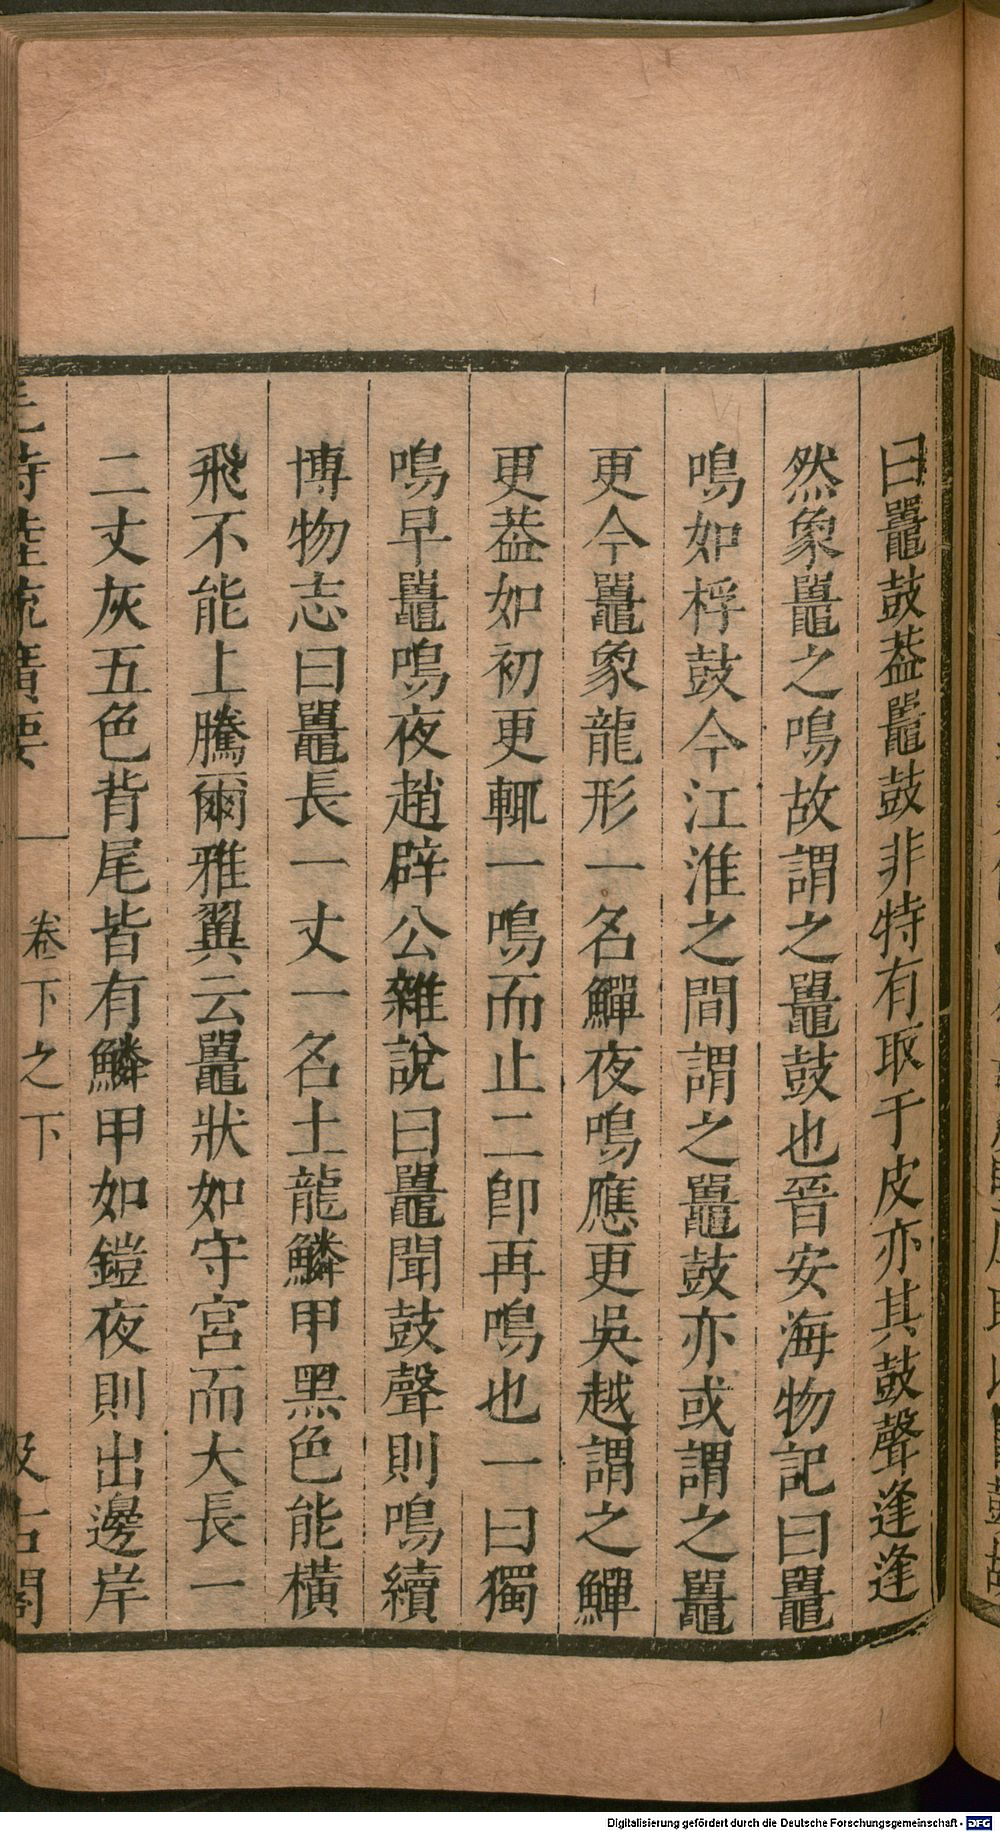 曰鼉鼓葢鼉鼓非特有取于皮亦其鼓聲逢逢
然象鼉之鳴故謂之鼉鼓也晉安海物記曰鼉
鳴如桴鼓今江淮之間謂之鼉鼓亦或謂之鼉
更今鼉象龍形一名鱓夜鳴應更吳越謂之鱓
更葢如初更輒一鳴而止二卽再鳴也一曰獨
鳴早鼉鳴夜趙辟公雜說曰鼉聞鼓聲則鳴續
博物志曰鼉長一丈一名土龍鱗甲黑色能橫
飛不能上騰爾雅翼云鼉狀如守宮而大長一
二丈灰五色背尾皆有鱗甲如鎧夜則出邊岸
毛詩陸疏廣要 卷下之下 汲古閣
Digitalisierung gefördert durch die Deutsche Forschungsgemeinschaft - DFG